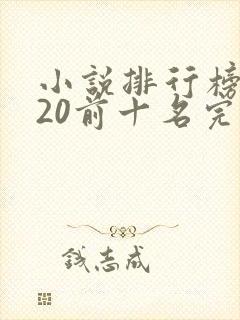 小説排行榜
20前十名完
钱志成